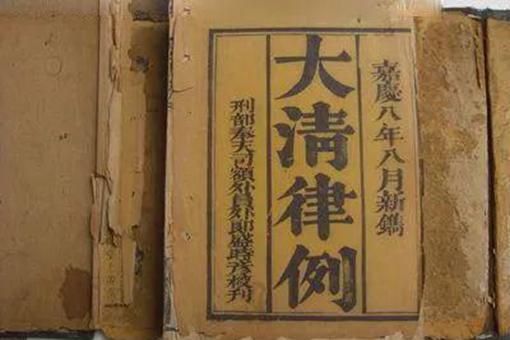 嘉慶八年八月新鐫
大清律例
刑部奉天司額外員外郎盛時彦校刊